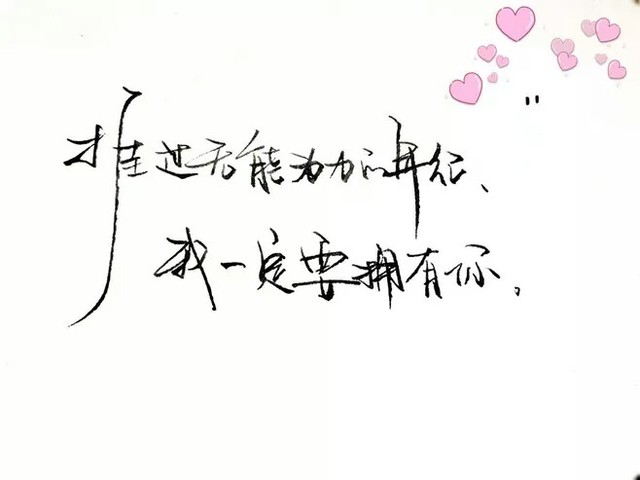 捱过无能为力的年纪、
我一定要拥有你。